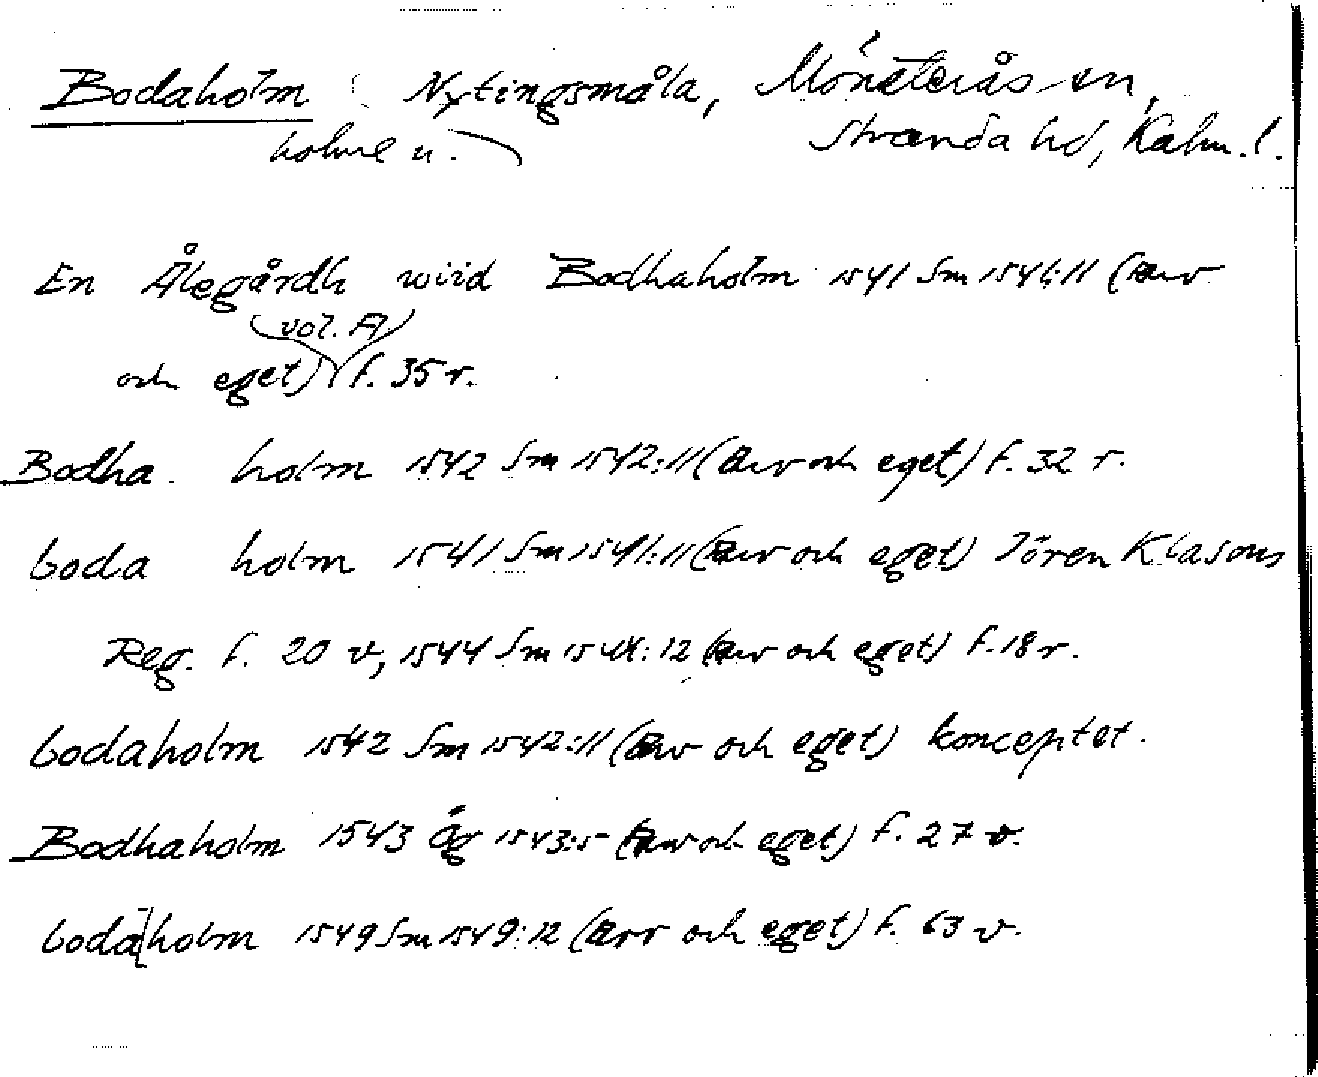 Bodaholm : Nytingsmåla, Mönsterås sn,
holme u. Stranda hd, Kalm. l.
En Ålegårdh wiid Bodhaholm 1541 Sm 1541:11 (Arv
vol. A
och eget) f. 35 r.
Bodha holm 1542 Sm 1542:11 (Arv och eget) f. 32 r.
boda holm 1541 Sm 1541:11 (Arv och eget) Jören Klasons
Reg. f. 20 v, 1544 Sm 1544:12 (Arv och eget) f. 18 r.
bodaholm 1542 Sm 1542:11 (Arv och eget) konceptet.
Bodhaholm 1543 Ög 1543:5 (Arv och eget) f. 27 v.
boda|holm 1549 Sm 1549:12 (Arv och eget) f. 63 v.